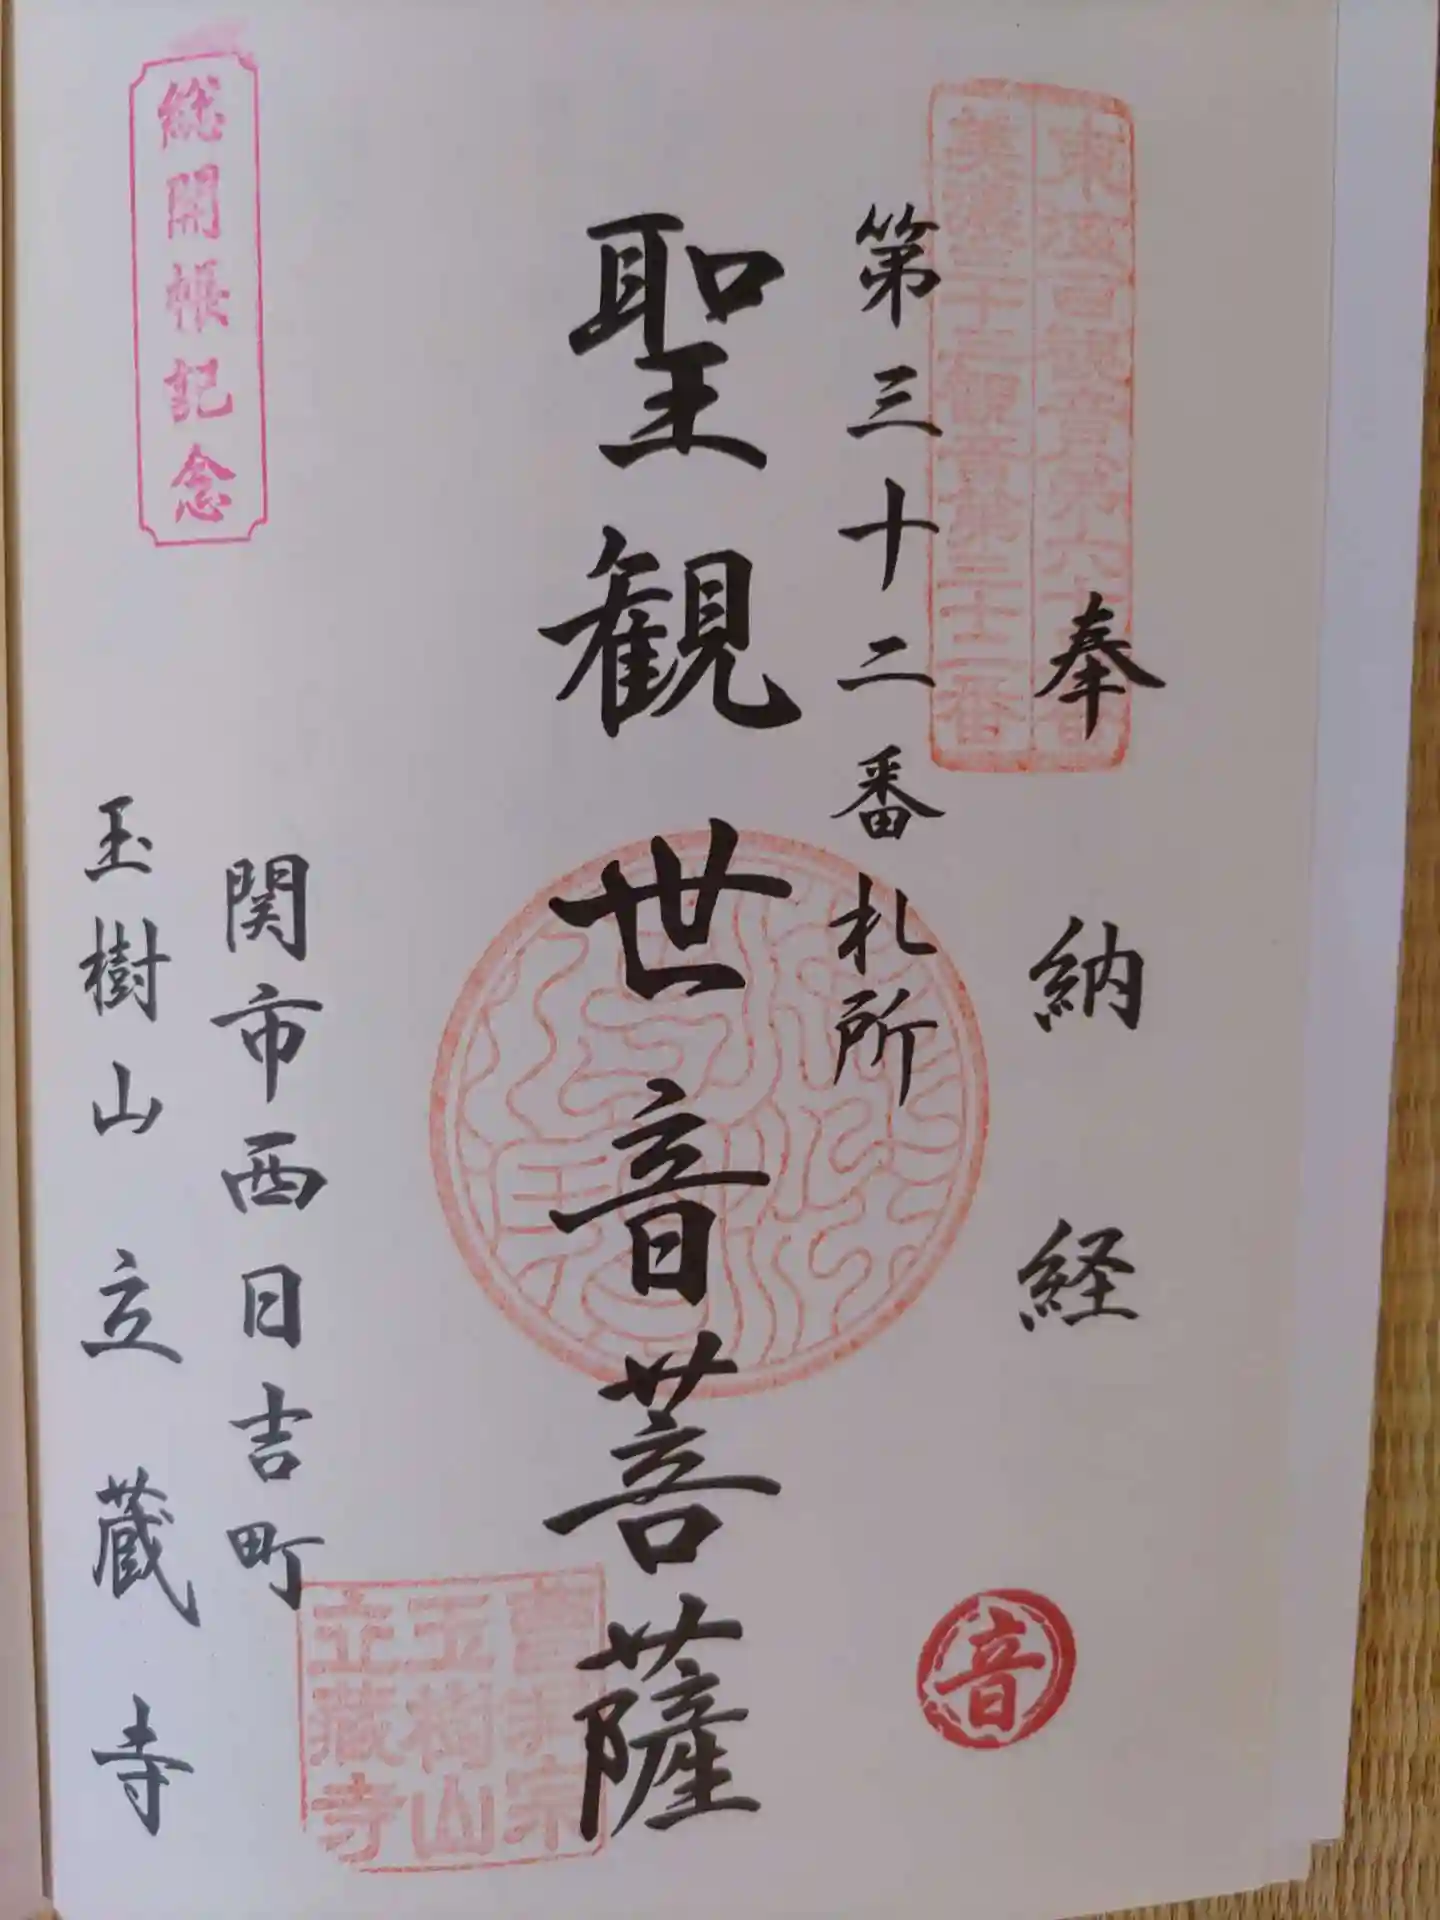 奉納経
東海百観音第六十五番
美濃三十三観音第三十二番
第三十二番札所
聖観世音菩薩
音
曹洞宗
玉樹山
立蔵寺
関市西日吉町
玉樹山立蔵寺
総開帳記念